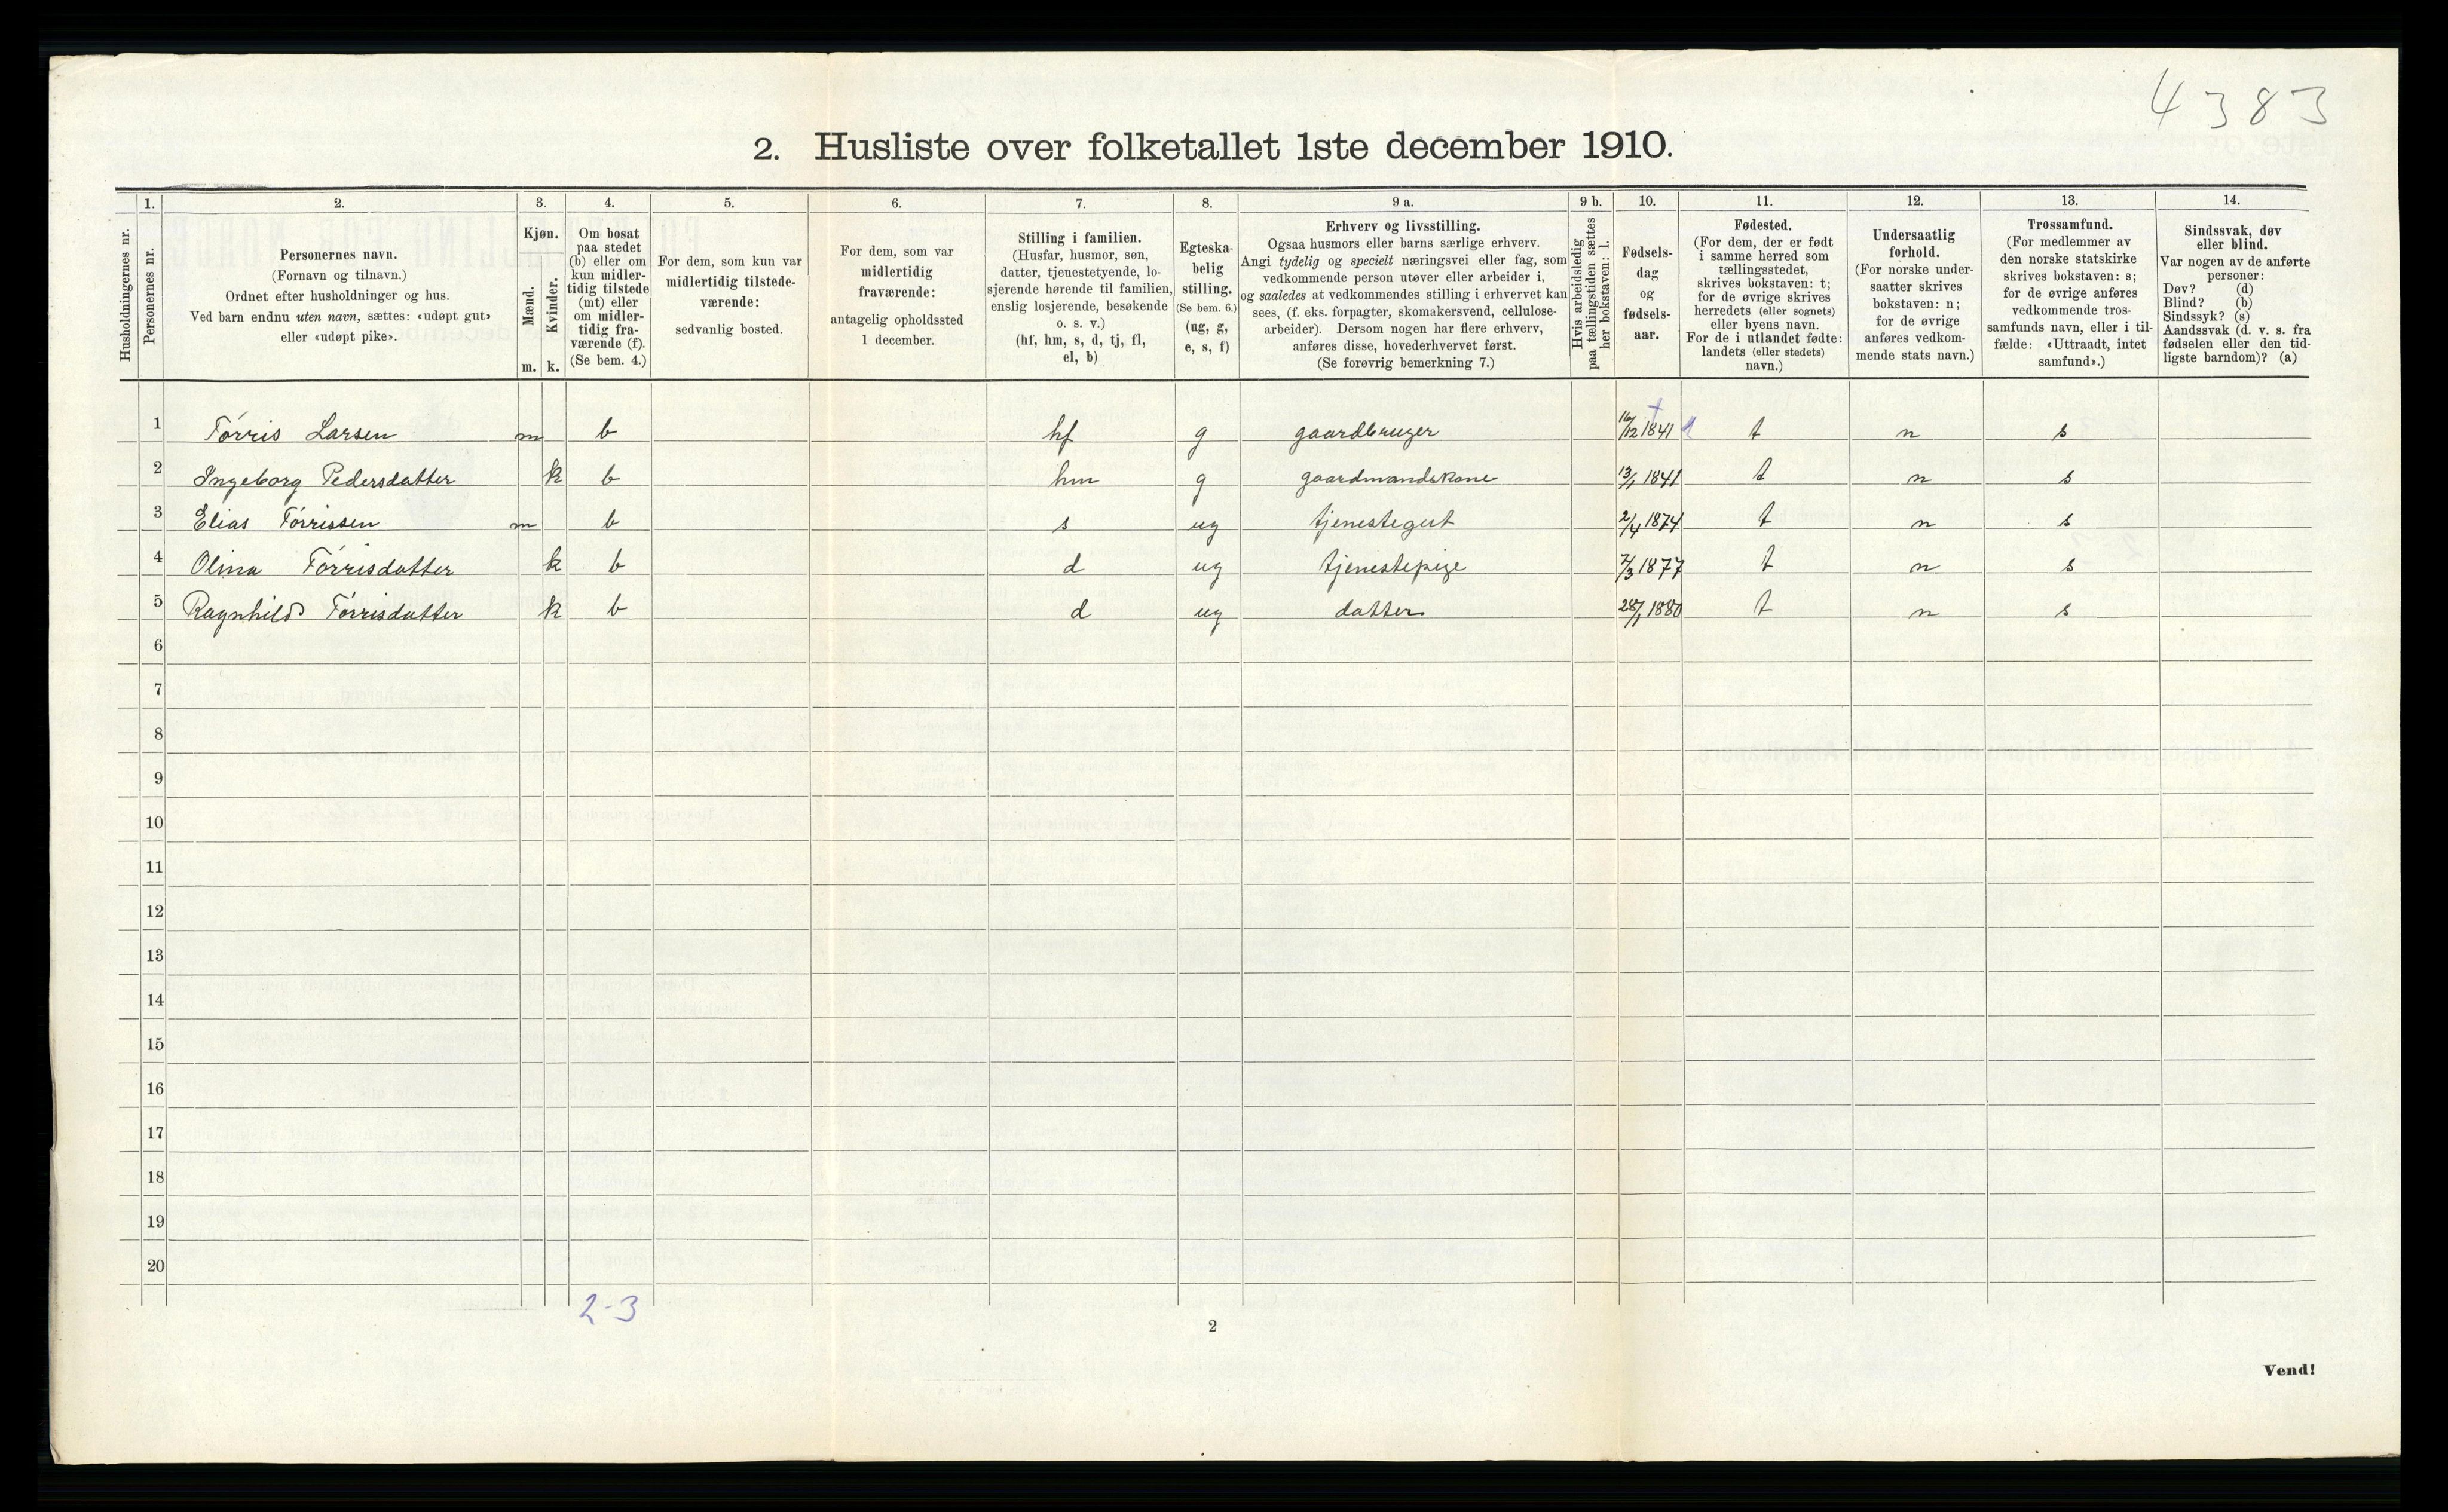 4383
2. Husliste over folketallet 1ste december 1910.
1. 2. 3. 4. 5. 6. 7. 8. 9 a. 9 b. 10. 11. 12. 13. 14.
Husholdningernes nr.
Personernes nr.
Personernes navn.
(Fornavn og tilnavn.)
Ordnet efter husholdninger og hus.
Ved barn endnu uten navn, sættes: «udøpt gut»
eller «udøpt pike».
Kjøn.
Mænd.
Kvinder.
m. k.
Om bosat
paa stedet
(b) eller om
kun midler-
tidig tilstede
(mt) eller
om midler-
tidig fra-
værende (f).
(Se bem. 4.)
For dem, som kun var
midlertidig tilstede-
værende:
sedvanlig bosted.
For dem, som var
midlertidig
fraværende:
antagelig opholdssted
1 december.
Stilling i familien.
(Husfar, husmor, søn,
datter, tjenestetyende, lo-
sjerende hørende til familien,
enslig losjerende, besøkende
o. s. v.)
(hf, hm, s, d, tj, fl,
el, b)
Egteska-
belig
stilling.
(Se bem. 6.)
(ug, g,
e, s, f)
Erhverv og livsstilling.
Ogsaa husmors eller barns særlige erhverv.
Angi tydelig og specielt næringsvei eller fag, som
vedkommende person utøver eller arbeider i,
og saaledes at vedkommendes stilling i erhvervet kan
sees, (f. eks. forpagter, skomakersvend, cellulose-
arbeider). Dersom nogen har flere erhverv,
anføres disse, hovederhvervet først.
(Se forøvrig bemerkning 7.)
Hvis arbeidsledig
paa tællingstiden sættes
her bokstaven: l.
Fødsels-
dag
og
fødsels-
aar.
Fødested.
(For dem, der er født
i samme herred som
tællingsstedet,
skrives bokstaven: t;
for de øvrige skrives
herredets (eller sognets)
eller byens navn.
For de i utlandet fødte:
landets (eller stedets)
navn.)
Undersaatlig
forhold.
(For norske under-
saatter skrives
bokstaven: n;
for de øvrige
anføres vedkom-
mende stats navn.)
Trossamfund.
(For medlemmer av
den norske statskirke
skrives bokstaven: s;
for de øvrige anføres
vedkommende tros-
samfunds navn, eller i til-
fælde: «Uttraadt, intet
samfund».)
Sindssvak, døv
eller blind.
Var nogen av de anførte
personer:
Døv? (d)
Blind? (b)
Sindssyk? (s)
Aandssvak (d. v. s. fra
fødselen eller den tid-
ligste barndom)? (a)
1 Tórris Larsen m b hf g gaardbruger 16/12 1841 t n s
2 Ingeborg Pedersdatter k b hm g gaardmandskone 13/1 1841 t n s
3 Elias Tórrissen m b s ug tjenestegut 2/4 1874 t n s
4 Olina Tórrisdatter k b d ug tjenestepige 7/3 1877 t n s
5 Ragnhild Tórrisdatter k b d ug datter 28/1 1880 t n s
6
7
8
9
10
11
12
13
14
15
16
17
18
19
20
2-3
2
Vend!